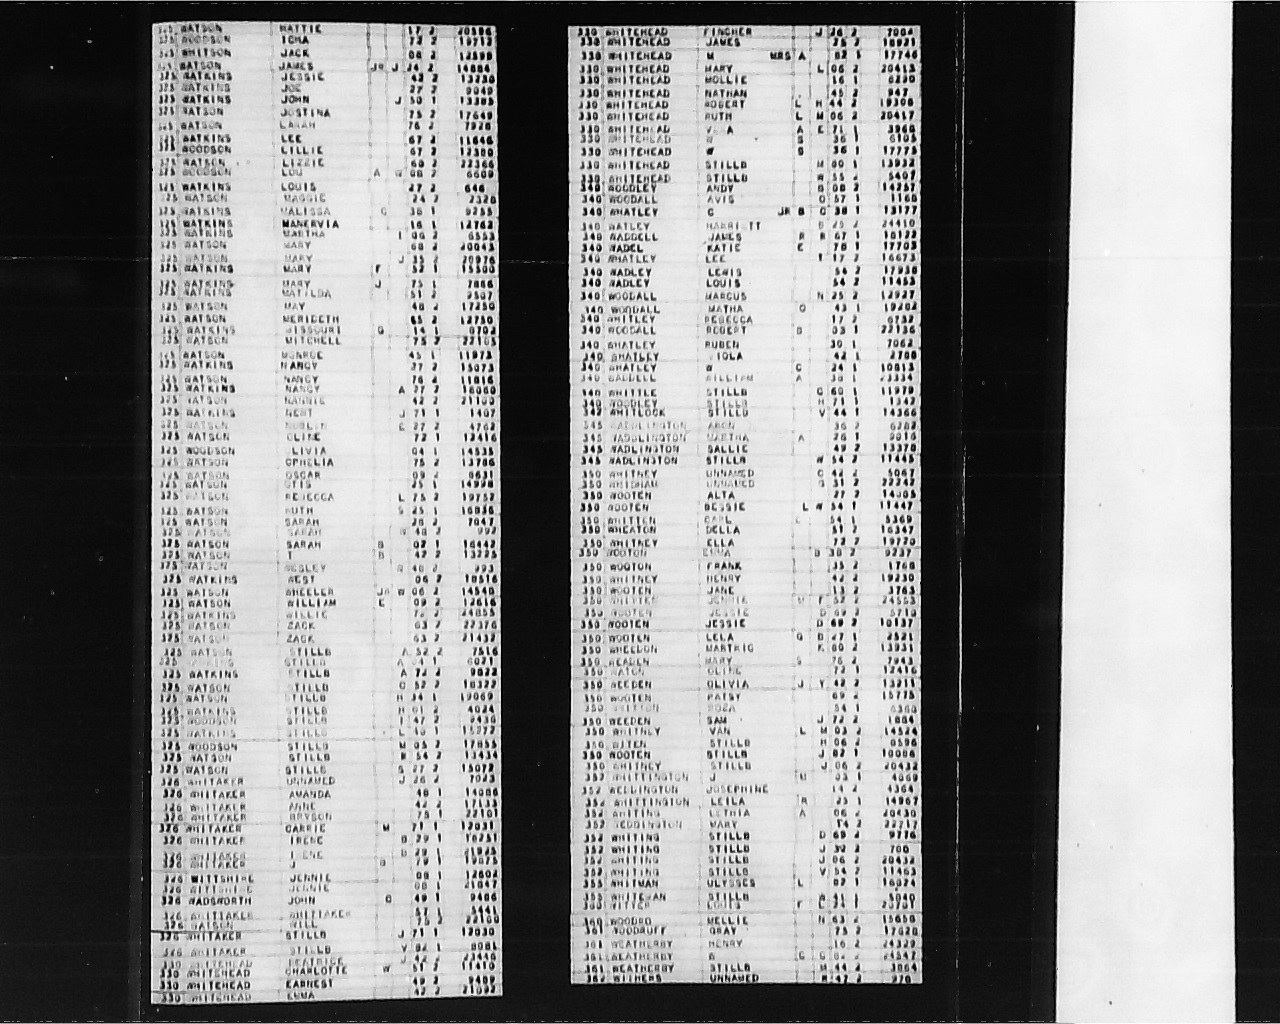 325 WATSON HATTIE 17 2 20586
325 WOODSON ICHA 72 2 19712
325 WHITSON JACK 08 2 12598
325 WATSON JAMES JR J 24 2 14086
325 WATKINS JESSIE 42 2 13230
325 WATKINS JOE 27 2 9049
325 WATKINS JOHN J 50 1 13385
325 WATSON JUSTINA 75 2 17649
325 WATSON 76 2 7928
325 WATKINS LEE 67 2 11646
325 WOODSON LILLIE 67 2 12380
325 WATSON LIZZIE 60 2 22366
325 WOODSON LOU A W 08 2 6609
325 WATKINS LOUIS 27 2 646
325 WATSON MAGGIE 24 2 2328
325 WATKINS MALISSA C 38 1 9255
325 WATKINS MANERVIA 16 1 12762
325 WATKINS MARTHA I 06 2 6553
325 WATSON MARY 60 2 20043
325 WATSON MARY J 35 2 20976
325 WATKINS MARY F 52 1 15500
325 WATKINS MARY J 75 1 7866
325 WATKINS MATILDA 51 2 2507
325 WATSON MAY 48 2 17250
325 WATSON MERIDETH 65 2 12750
325 WATKINS MISSOURI G 14 1 8702
325 WATSON MITCHELL 75 2 22105
325 WATSON MONROE 45 1 11973
325 WATKINS NANCY 27 2 15073
325 WATSON NANCY 76 2 11816
325 WATKINS NANCY A 27 2 16060
325 WATSON NANNIE 42 2 21100
325 WATKINS NEWT J 71 1 1407
325 WATSON E 27 2 4762
325 WATSON OLINE 72 1 12416
325 WOODSON OLIVIA 04 1 14535
325 WATSON OPHELIA 75 2 13786
325 WATSON OSCAR 09 2 8631
325 WATSON OTIS 25 1 14998
325 WATSON REBECCA L 75 2 19752
325 WATSON RUTH S 25 1 16836
325 WATSON SARAH 28 2 7047
325 WATSON SARAH W 48 2 992
325 WATSON SARAH B 02 1 16442
325 WATSON T B 42 2 13225
325 WATSON WESLEY R 48 2 993
325 WATKINS WEST 06 2 18516
325 WATSON WHEELER JR W 06 2 14540
325 WATSON WILLIAM E 09 2 12616
325 WATKINS WILLIE 72 2 24855
325 WATSON ZACK 63 2 22376
325 WATSON ZACK 63 2 21432
325 WATSON STILLB A 52 2 7516
325 STILLB A 04 1 6021
325 WATKINS STILLB A 72 2 9822
325 WATSON STILLB C 52 2 18322
325 WATSON STILLB H 34 1 19069
325 WATKINS STILLB H 01 2 4024
325 WOODSON STILLB I 47 2 9436
325 WATKINS STILLB L 10 1 15277
325 WOODSON STILLB M 05 2 17855
325 WATSON STILLB R 54 2 13434
325 WATSON STILLB S 27 2 15072
326 WHITAKER UNNAMED J 26 2 7023
326 WHITAKER AMANDA 40 1 14086
326 WHITAKER ANNE 42 2 17133
326 WHITAKER BRYSON 75 1 22101
326 WHITAKER CARRIE M 71 1 12031
326 WHITAKER IRENE B 29 1 18251
326 WHITAKER IRENE B 29 1 21925
326 WHITAKER J B 79 1 19875
326 WITTSHIRE JENNIE 08 1 12602
326 WITTSHIRE JENNIE 08 1 21047
326 WADSWORTH JOHN O 49 1 9486
326 WHITTAKER WHITTAKER 57 1 5441
326 WATSON WILL 75 2 22100
326 WHITAKER STILLB J 71 1 12030
326 WHITAKER STILLB V 82 1 8081
330 WHITEHEAD BEATRICE J 42 2 23446
330 WHITEHEAD CHARLOTTE W 51 2 11410
330 WHITEHEAD EARNEST 49 2 9409
330 WHITEHEAD EMMA 42 2 21092
330 WHITEHEAD FINCHER J 26 2 7004
330 WHITEHEAD JAMES 25 2 18921
330 WHITEHEAD M MRS A 82 1 17746
330 WHITEHEAD MARY L 06 2 20413
330 WHITEHEAD MOLLIE 16 1 8230
330 WHITEHEAD NATHAN 45 2 947
330 WHITEHEAD ROBERT L H 44 2 19308
330 WHITEHEAD RUTH L M 06 2 20417
330 WHITEHEAD A E 71 1 3968
330 WHITEHEAD W S 36 6105
330 WHITEHEAD W S 36 1 17775
330 WHITEHEAD STILLB M 80 1 13932
330 WHITEHEAD STILLB W 55 2 5407
340 WOODLEY ANDY B 08 2 14257
340 WOODALL AVIS O 57 1 1160
340 WHATLEY C JR B C 38 1 13177
340 WATLEY HARRIETT B 25 2 24410
340 WADDELL JAMES R R 67 1 10122
340 WADEL KATIE E 78 1 17703
340 WHATLEY LEE T 17 2 16673
340 WADLEY LEWIS 54 2 17938
340 WADLEY LOUIS 54 2 11452
340 WOODALL MARCUS N 25 2 12927
340 WOODALL MATHA O 43 1 19202
340 WHITLEY REBECCA 17 2 6752
340 WOODALL ROBERT B 03 1 22136
340 WHATLEY RUBEN 30 1 7062
340 WHATLEY VIOLA 42 1 2788
340 WHATLEY W C 24 1 10813
340 WADDELL WILLIAM A 38 1 23334
340 WHITTLE STILLB G 60 1 11979
340 WOODLEY STILLB H 71 1342
342 WHITLOCK STILLB V 44 1 14366
345 WADDLINGTON ARON 36 2 6282
345 WADDLINGTON MARTHA A 26 1 9916
345 WADLINGTON SALLIE 49 2 13378
345 WADLINGTON STILLB W 54 2 11445
350 WHITNEY UNNAMED C 42 2 5067
350 WHIDHAM UNNAMED G 31 2 22247
350 WOOTEN ALTA 27 2 14005
350 WOOTEN BESSIE L W 54 1 11447
350 WHITTEN CARL L 54 1 5369
350 WHEATON DELLA 51 2 16347
350 WHITNEY ELLA 72 2 19720
350 WOOTON EMMA B 38 2 9237
350 WOOTON FRANK 35 2 1768
350 WHITNEY HENRY 42 2 19230
350 WOOTEN JANE 13 2 3763
350 WHITTEN JENNIE M F 52 2 24553
350 WOOTEN JESSIE D 69 2 5710
350 WOOTEN JESSIE D 69 2 10137
350 WOOTEN LELA G B 27 1 2521
350 WHEELDON MARTKIG K 80 2 13931
350 WEADEN MARY S 76 2 7943
350 WATON OLINE 72 1 12416
350 WEEDEN OLIVIA J Y 42 2 13211
350 WOOTEN PATSY 69 2 15775
350 WHITTON ROZA 54 1 6360
350 WEEDEN SAM J 72 2 1884
350 WHITNEY VAN L M 03 2 14524
350 WITEN STILLB H 06 2 8596
350 WOOTEN STILLB J 82 1 10086
350 WHITNEY STILLB J 06 2 20432
352 WHITTINGTON J M 03 1 4869
352 WEDLINGTON JOSEPHINE 14 2 4364
352 WHITTINGTON LEILA R 25 1 14967
352 WHITING LETHIA A 06 2 20430
352 WEDDINGTON MARY T4 2 22717
352 WHITING STILLB D 69 2 9776
352 WHITING STILLB J 32 2 700
352 WHITING STILLB J 06 2 20432
352 WHITING STILLB V 54 2 11463
355 WHITMAN ULYSSES L 82 1 16024
355 WHITEMAN STILLB 5040
360 LOUIS F
360 WOODRO MELLIE N 63 2 15658
361 WOODRUFF GRAY 75 2 17628
361 WEATHERBY HENRY 16 2 24329
361 WEATHERBY R C G 02 2 24547
361 WEATHERBY STILLB M 44 2 3864
362 WITHERS UNNAMED R 47 2 770